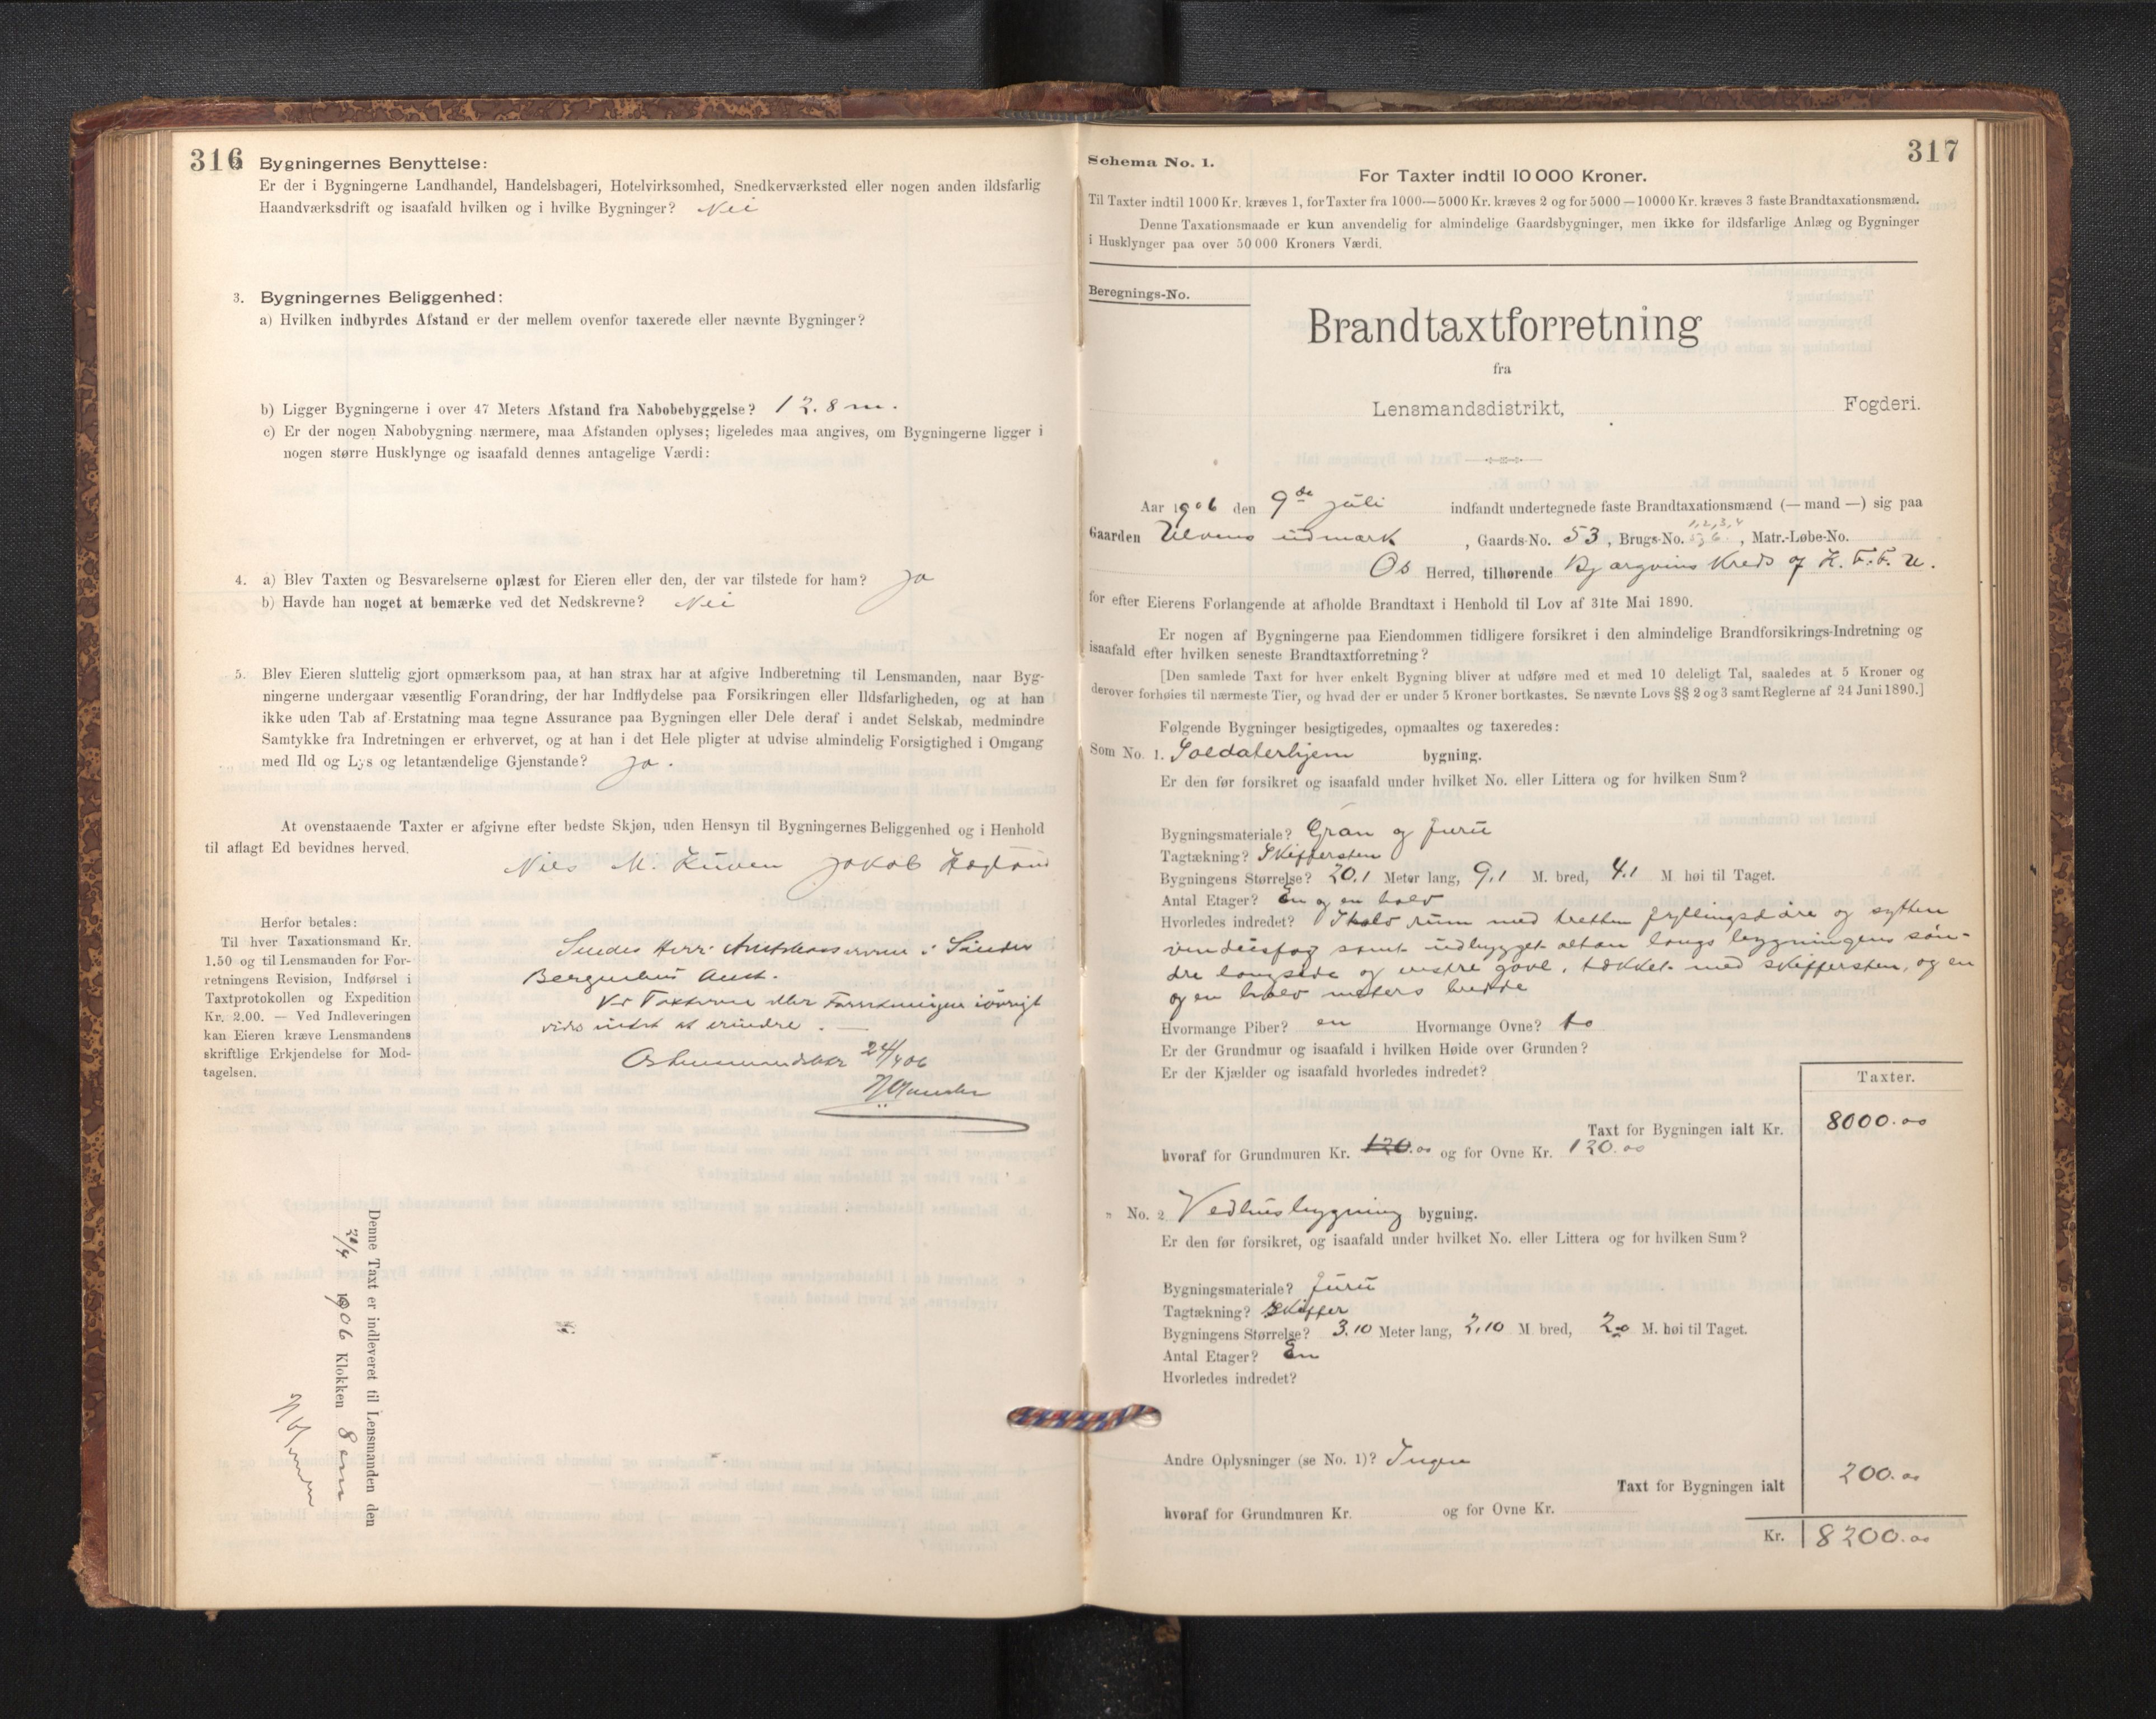 316
Bygningernes Benyttelse:
Er der i Bygningerne Landhandel, Handelsbageri, Hotelvirksomhed, Snedkerværksted eller nogen anden ildsfarlig
Haandværksdrift og isaafald hvilken og i hvilke Bygninger? Nei
3. Bygningernes Beliggenhed:
a) Hvilken indbyrdes Afstand er der mellem ovenfor taxerede eller nævnte Bygninger?
b) Ligger Bygningerne i over 47 Meters Afstand fra Nabobebyggelse? 12.8 m.
c) Er der nogen Nabobygning nærmere, maa Afstanden oplyses; ligeledes maa angives, om Bygningerne ligger i
nogen større Husklynge og isaafald dennes antagelige Værdi:
4. a) Blev Taxten og Besvarelserne oplæst for Eieren eller den, der var tilstede for ham? Ja
b) Havde han noget at bemærke ved det Nedskrevne? Nei
5. Blev Eieren sluttelig gjort opmærksom paa, at han strax har at afgive Indberetning til Lensmanden, naar Byg-
ningerne undergaar væsentlig Forandring, der har Indflydelse paa Forsikringen eller Ildsfarligheden, og at han
ikke uden Tab af Erstatning maa tegne Assurance paa Bygningen eller Dele deraf i andet Selskab, medmindre
Samtykke fra Indretningen er erhvervet, og at han i det Hele pligter at udvise almindelig Forsigtighed i Omgang
med Ild og Lys og letantændelige Gjenstande? Ja.
At ovenstaaende Taxter er afgivne efter bedste Skjøn, uden Hensyn til Bygningernes Beliggenhed og i Henhold
til aflagt Ed bevidnes herved.
Niels M. Kuven Jakob
Herfor betales:
Til hver Taxationsmand Kr.
1.50 og til Lensmanden for For-
retningens Revision, Indførsel i
Taxtprotokollen og Expedition
Kr. 2.00. — Ved Indleveringen
kan Eieren kræve Lensmandens
skriftlige Erkjendelse for Mod-
tagelsen.
Sendes Herr i Søndre
Bergenhus Amt.
Ved Taxterne eller Forretningen iøvrigt
vides intet at erindre.
24/
Denne Taxt er indleveret til Lensmanden den
1906 Klokken 8 em
317
Schema No. 1.
For Taxter indtil 10 000 Kroner.
Til Taxter indtil 1000 Kr. kræves 1, for Taxter fra 1000—5000 Kr. kræves 2 og for 5000—10000 Kr. kræves 3 faste Brandtaxationsmænd.
Denne Taxationsmaade er kun anvendelig for almindelige Gaardsbygninger, men ikke for ildsfarlige Anlæg og Bygninger
i Husklynger paa over 50 000 Kroners Værdi.
Beregnings-No.
Brandtaxtforretning
fra
Lensmandsdistrikt, Fogderi.
Aar 1906 den 9de juli indfandt undertegnede faste Brandtaxationsmænd (— mand —) sig paa
Gaarden Ulvens udmark, Gaards-No. 53, Brugs-No. 1,2,3,4 5,6., Matr.-Løbe-No.
Os Herred, tilhørende Bjørgvins Kreds af K. F. F. U.
for efter Eierens Forlangende at afholde Brandtaxt i Henhold til Lov af 31te Mai 1890.
Er nogen af Bygningerne paa Eiendommen tidligere forsikret i den almindelige Brandforsikrings-Indretning og
isaafald efter hvilken seneste Brandtaxtforretning?
[Den samlede Taxt for hver enkelt Bygning bliver at udføre med et med 10 deleligt Tal, saaledes at 5 Kroner og
derover forhøies til nærmeste Tier, og hvad der er under 5 Kroner bortkastes. Se nævnte Lovs §§ 2 og 3 samt Reglerne af 24 Juni 1890.]
Følgende Bygninger besigtigedes, opmaaltes og taxeredes:
Som No. 1. Soldaterhjem bygning.
Er den før forsikret og isaafald under hvilket No. eller Littera og for hvilken Sum?
Bygningsmateriale? Gran og furu
Tagtækning? Skiffersten
Bygningens Størrelse? 20.1 Meter lang, 9.1 M. bred, 4.1 M. høi til Taget.
Antal Etager? En og en halv
Hvorledes indredet? rum med tretten fyllingsdøre og sytten
vinduisfag samt udbygget altan langs bygningens søn-
dre langside og vestre gavl, tækket med skiffersten, og en
og en halv meters bredde
Hvormange Piber? en Hvormange Ovne? to
Er der Grundmur og isaafald i hvilken Høide over Grunden?
Er der Kjælder og isaafald hvorledes indredet?
Taxter.
Taxt for Bygningen ialt Kr. 8000.00
hvoraf for Grundmuren Kr. 120.00 og for Ovne Kr. 120.00
" No. 2 Vedhusbygning bygning.
Er den før forsikret, og isaafald under hvilket No. eller Littera og for hvilken Sum?
Bygningsmateriale? furu
Tagtækning? Skiffer
Bygningens Størrelse? 3.10 Meter lang, 2.10 M. bred, 2.0 M. høi til Taget.
Antal Etager? En
Hvorledes indredet?
Andre Oplysninger (se No. 1)? Ingen
Taxt for Bygningen ialt 200.00
hvoraf for Grundmuren Kr. og for Ovne Kr.
Kr. 8200.00